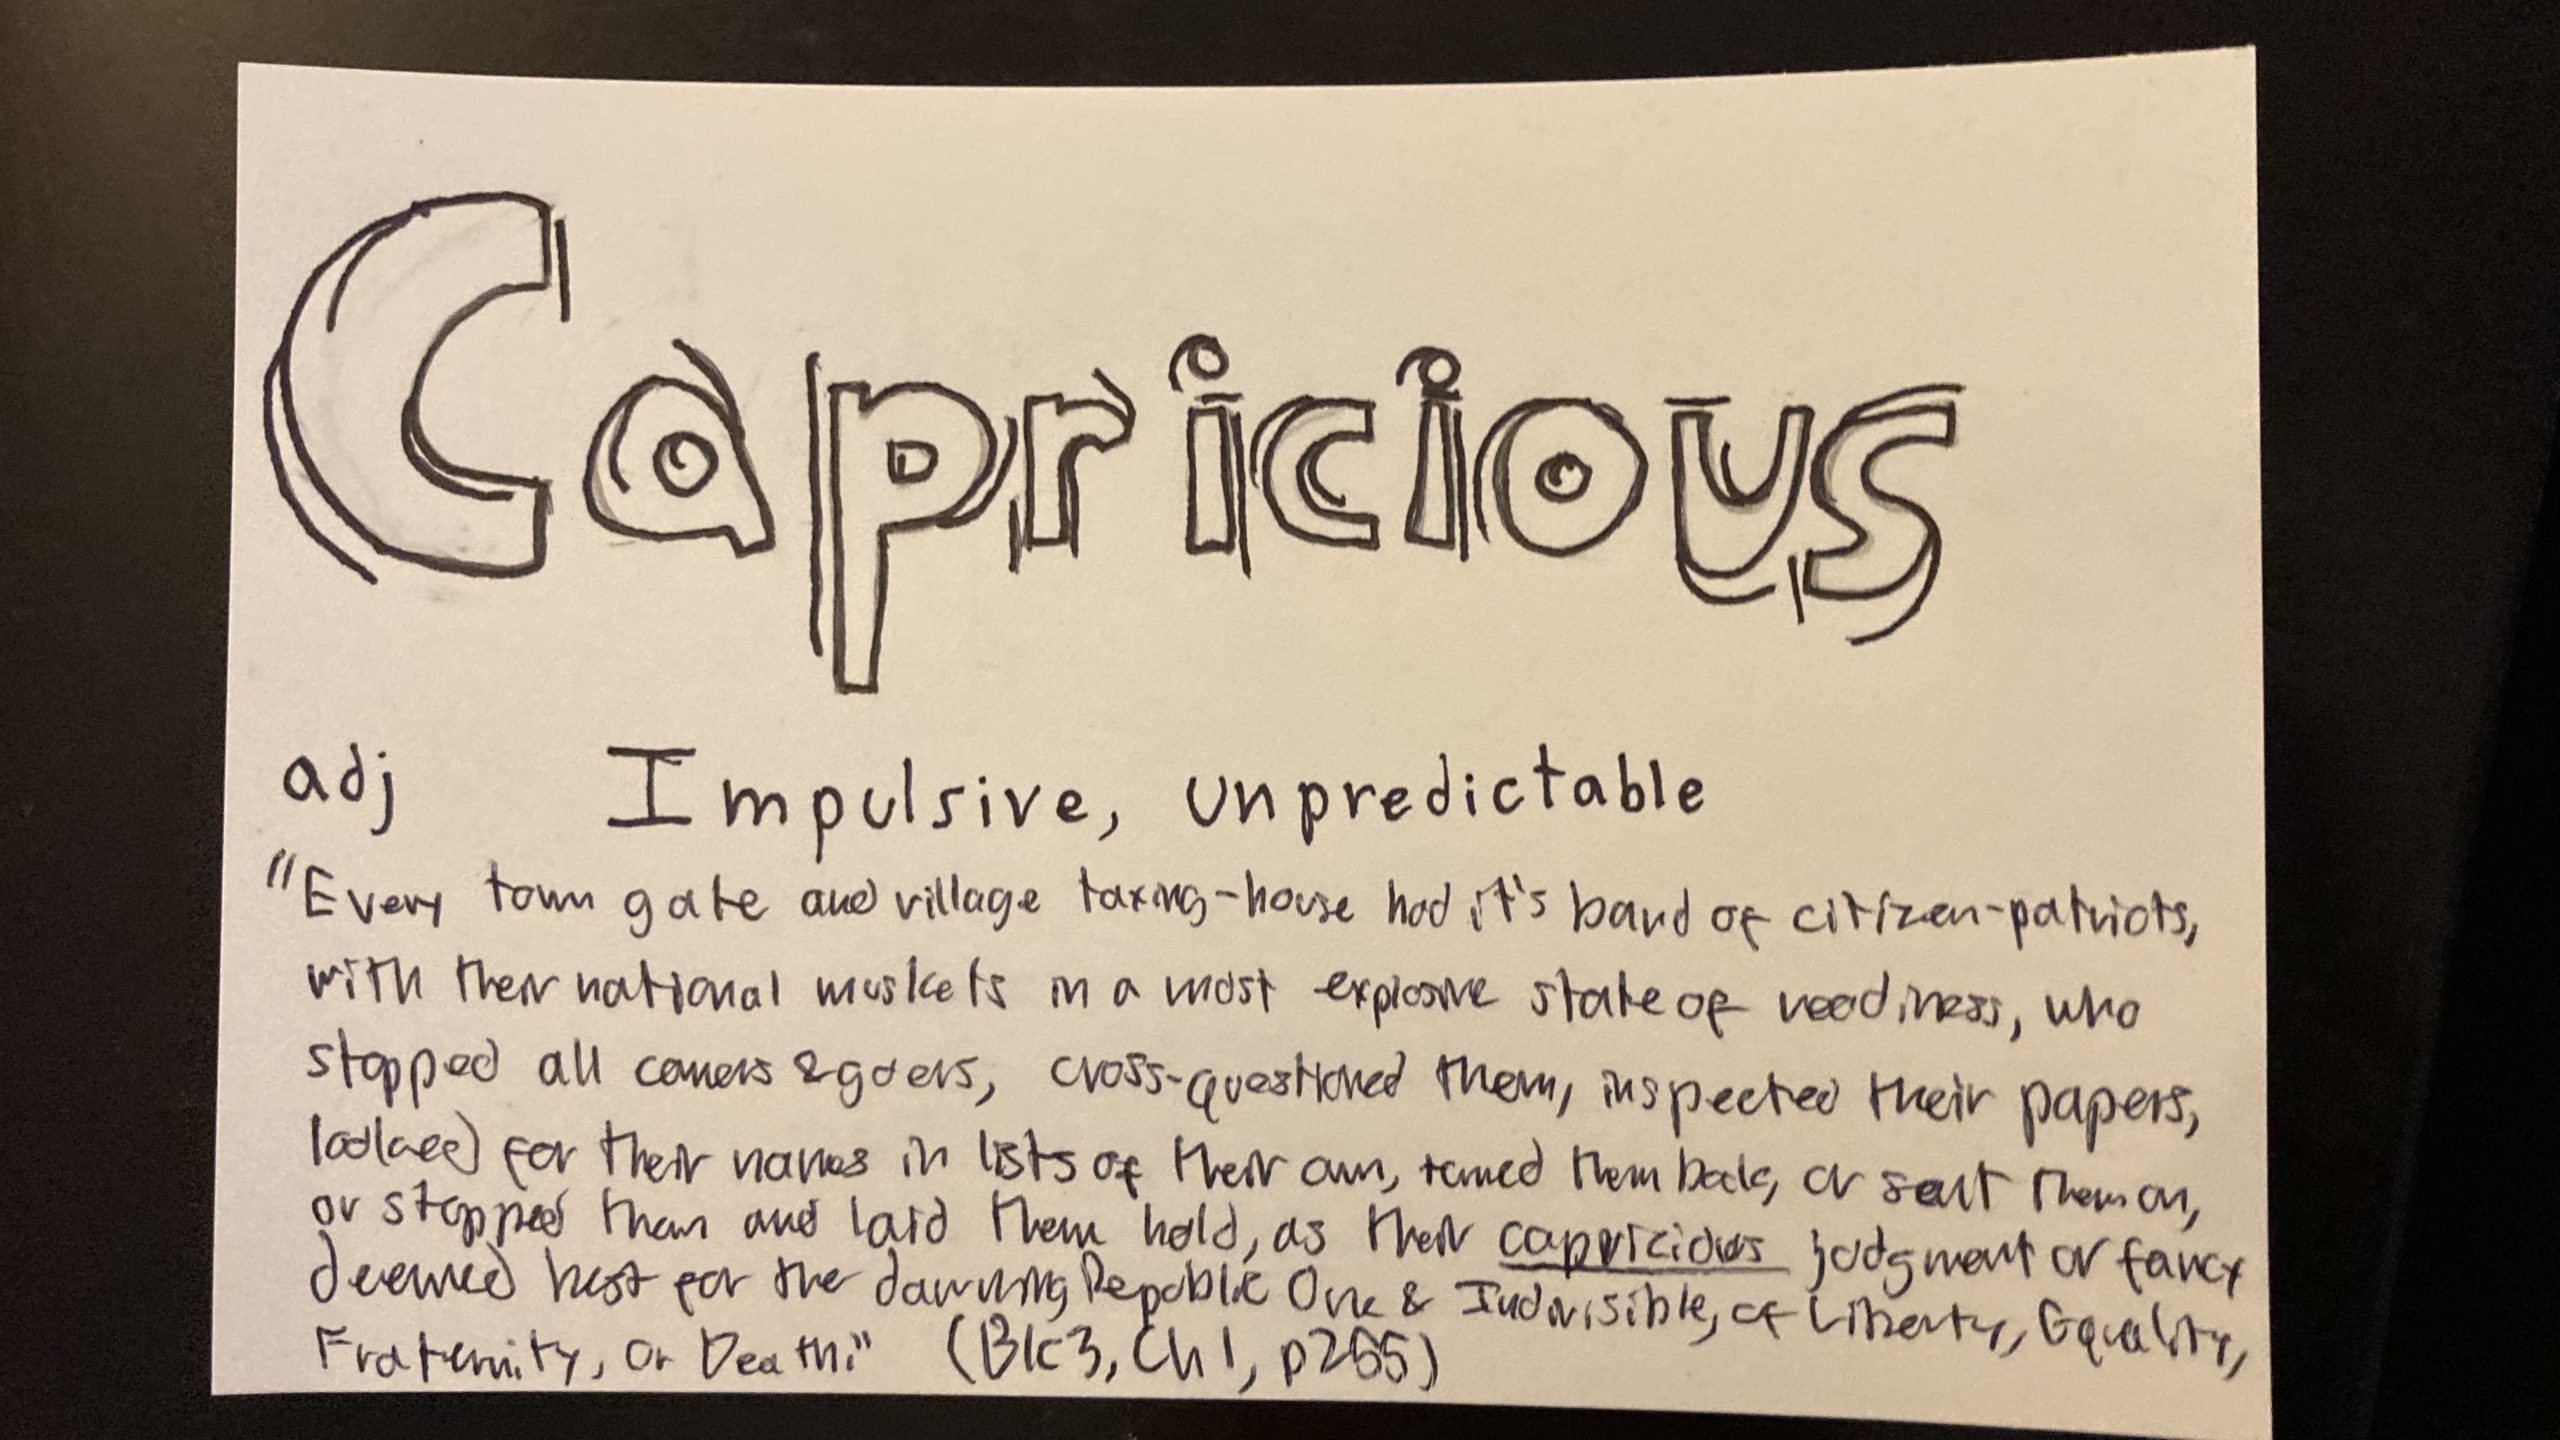 Capricious
adj Impulsive, unpredictable
"Every town gate and village taxing-house had it's band of citizen-patriots,
with their national muskets in a most explosive state of readiness, who
stopped all comers & goers, cross-questioned them, inspected their papers,
looked for their names in lists of their own, turned them back, or sent them on,
or stopped them and laid them hold, as their capricious judgment or fancy
deemed best for the dawning Republic One & Indivisible, of Liberty, Equality,
Fraternity, or Death." (Bk3, Ch1, p255)